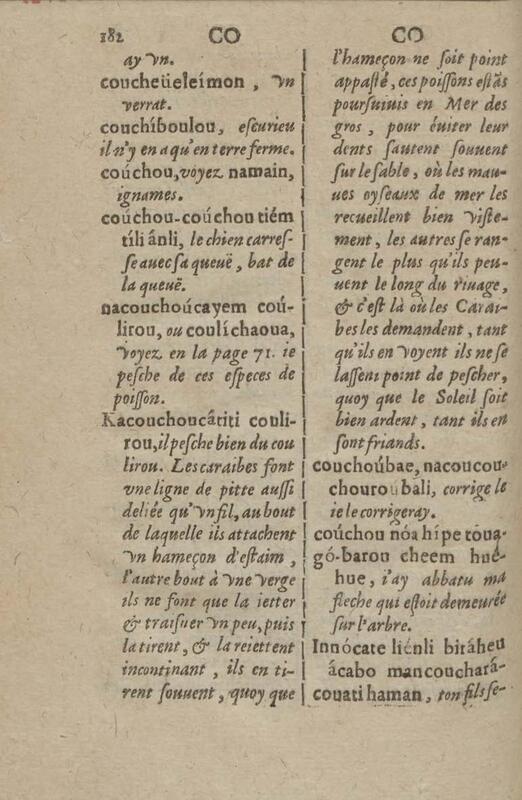 182 CO
ay vn.
coucheüeleímon , vn
verrat.
couchíboulou, escurieu
il n'y en a qu'en terre ferme.
coúchou, voyez namain,
ignames.
coúchou-coúchou tiém
tíli ânli, le chien carres-
se auec sa queuë, bat de
la queuë.
nacouchoúcayem coú-
lirou, ou coulíchaoua,
voyez en la page 71. ie
pesche de ces especes de
poisson.
Kacouchoucâtiti couli-
rou, il pesche bien du cou
lirou. Les caraibes font
vne ligne de pitte aussi
deliée qu'vn fil, au bout
de laquelle ils attachent
vn hameçon d'estaim ,
l'autre bout à vne verge
ils ne font que la ietter
& traisner vn peu, puis
la tirent, & la reiettent
incontinant , ils en ti-
rent souuent, quoy que
CO
l'hameçon ne soit point
appasté, ces poissons estãs
poursuiuis en Mer des
gros , pour éuiter leur
dents sautent souuent
sur le sable, où les mau-
ues oyseaux de mer les
recueillent bien viste-
ment , les autres se ran-
gent le plus qu'ils peu-
uent le long du riuage,
& c'est là où les Carai-
bes les demandent , tant
qu'ils en voyent ils ne se
lassent point de pescher,
quoy que le Soleil soit
bien ardent , tant ils en
sont friands.
couchoúbae, nacoucou-
chouroubali, corrige le
ie le corrigeray.
coúchou nóa hípe roua-
gó-barou cheem hué-
hue, i'ay abbatu ma
fleche qui estoit demeurée
sur l'arbre.
Innócate liénli biráheu
ácabo mancouchará-
couati haman, ton fils se-